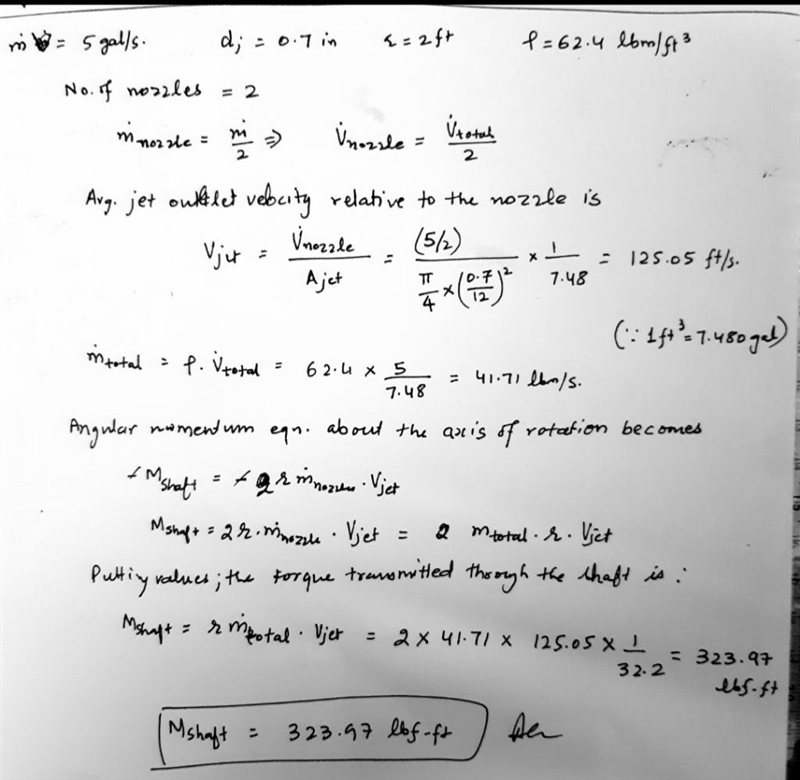 ṁ = 5 gal/s. dj = 0.7 in r = 2 ft ρ = 62.4 lbm/ft³
No. of nozzles = 2
ṁnozzle = ṁ/2 ⇒ V̇nozzle = V̇total/2
Avg. jet outlet velocity relative to the nozzle is
Vjet = V̇nozzle/Ajet = (5/2)/(π/4 × (0.7/12)²) × 1/7.48 = 125.05 ft/s.
(∵ 1ft³ = 7.480 gal)
ṁtotal = ρ. V̇total = 62.4 × 5/7.48 = 41.71 lbm/s.
Angular momentum eqn. about the axis of rotation becomes
-Mshaft = -2 r ṁnozzle . Vjet
Mshaft = 2 r. ṁnozzle . Vjet = 2 mtotal . r. Vjet
Putting values; the torque transmitted through the shaft is :
Mshaft = r ṁtotal . Vjet = 2 × 41.71 × 125.05 × 1/32.2 = 323.97
lbf-ft
Mshaft = 323.97 lbf-ft Ans